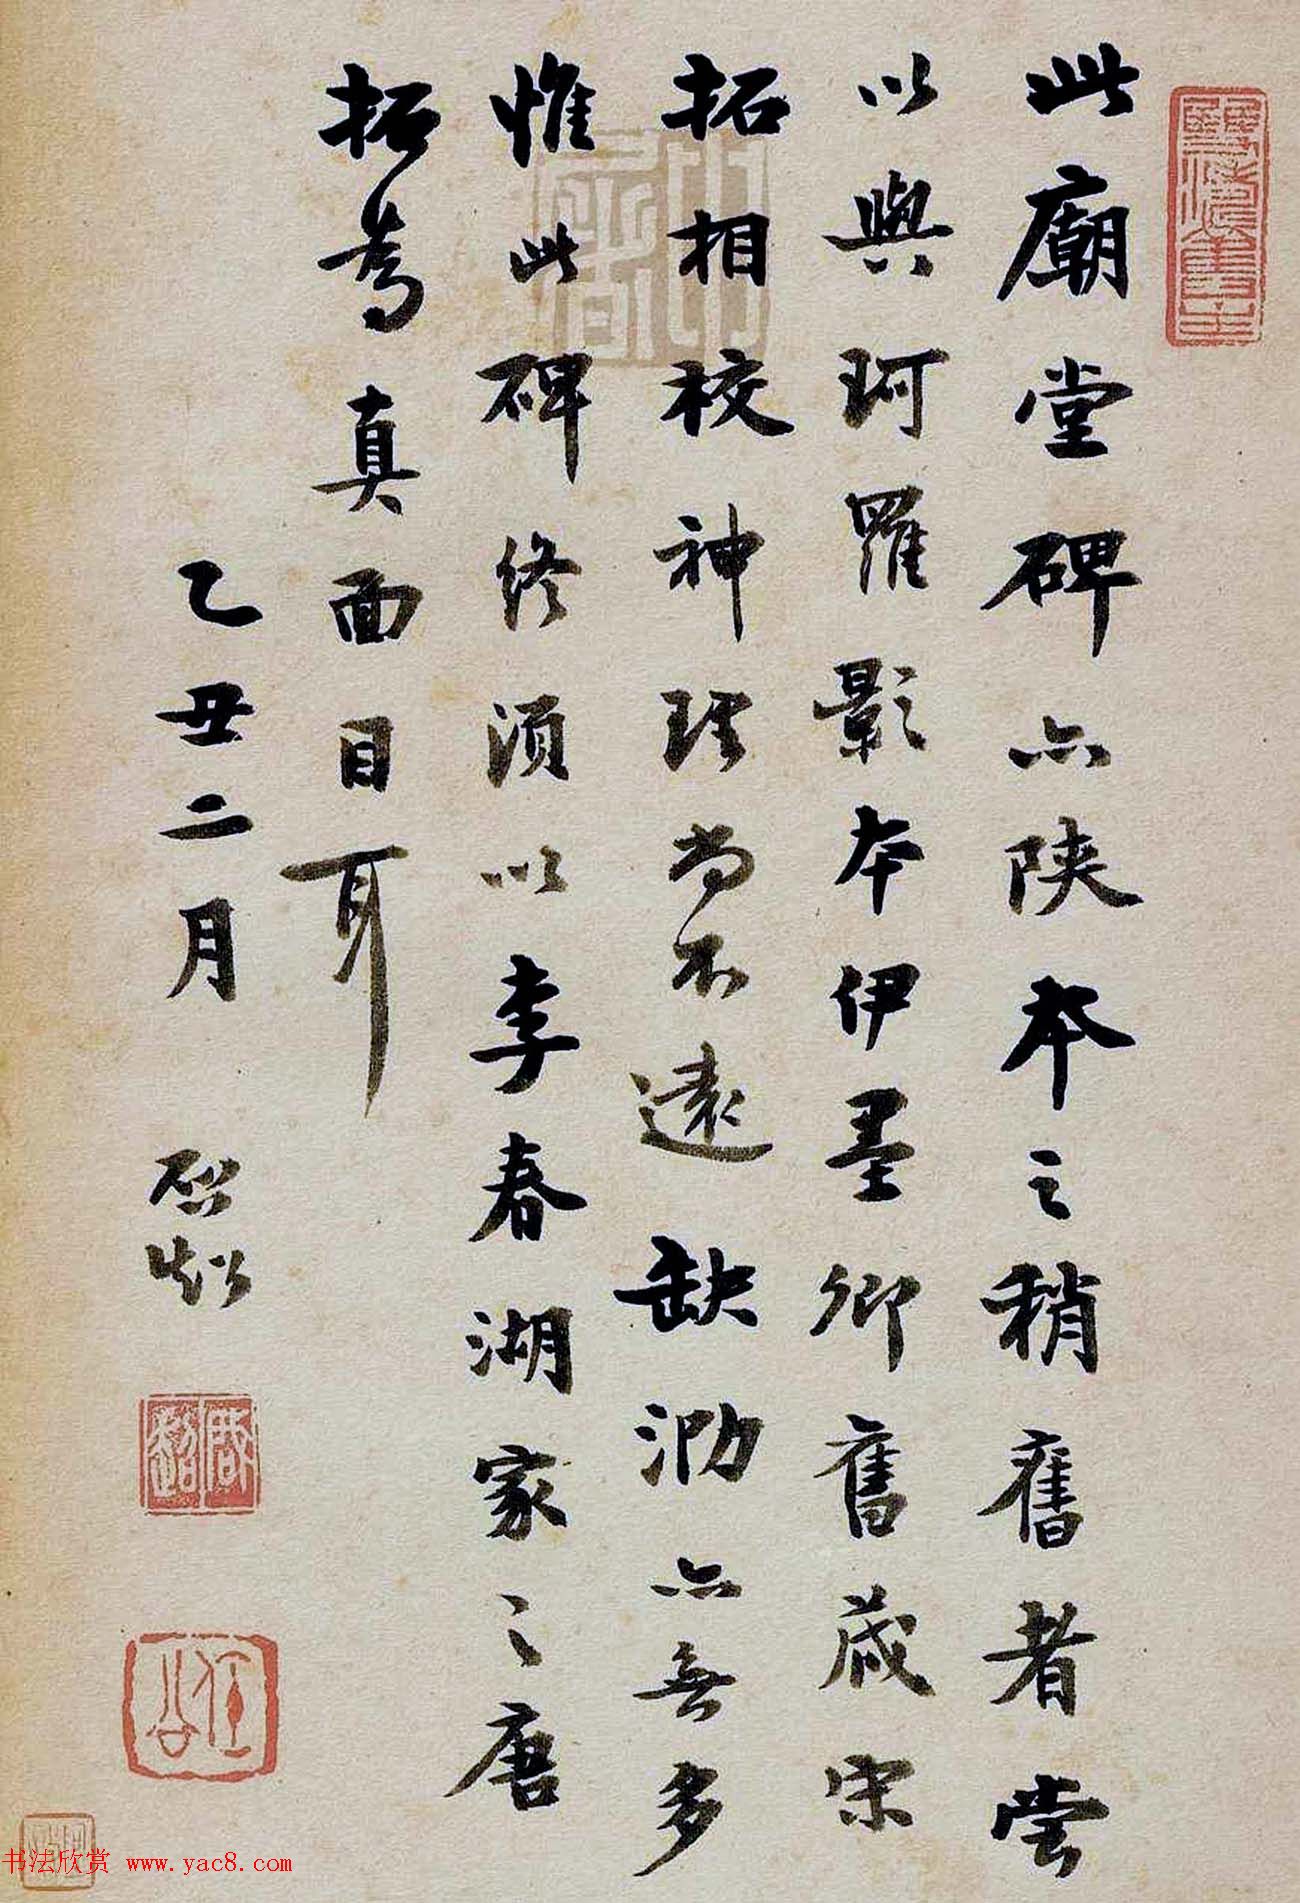 此廟堂碑亦陝本之稍舊者嘗
以與珂羅影本伊墨卿舊藏宋
拓相校神理尚不遠缺泐亦無多
惟此碑終須以李春湖家之唐
拓為真面目耳
乙丑二月 啟超
啟超
任公
书法欣赏 www.yac8.com